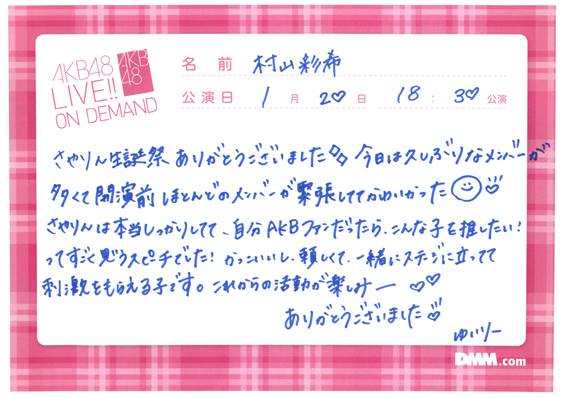 AKB48
LIVE!!
ON DEMAND
AKB
48
名前 村山彩希
公演日 1月20日 18:30公演
さやりん生誕祭ありがとうございました 今日は久しぶりなメンバーが
多くて開演前ほとんどのメンバーが緊張しててかわいかった
さやりんは本当しっかりしてて、自分AKBファンだったら、こんな子を推したい!
ってすごく思うスピーチでした!かっこいいし、頼しくて、一緒にステージに立ってて
刺激をもらえる子です。これからの活動が楽しみー
ありがとうございました
ゆいりー
DMM.com